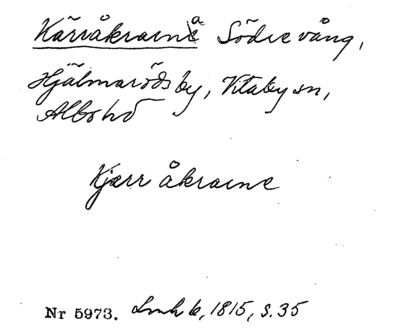 Kärråkrarna å Södre vång,
Hjälmaröds by, Vitaby sn,
Albo hd
Kjerr åkrarne
Nr 5973. Lmh b, 1815, s. 35